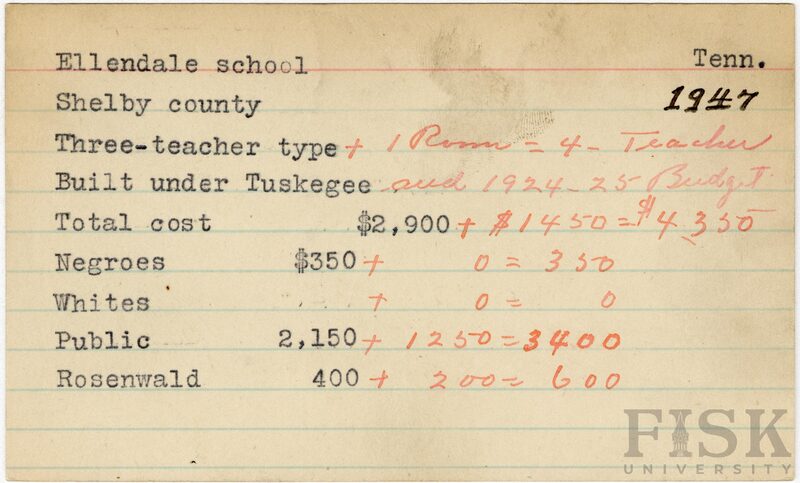 Ellendale school Tenn.
Shelby county 1947
Three-teacher type + 1 Room = 4- Teacher
Built under Tuskegee and 1924-25 Budget
Total cost $2,900 + $1450 = $4,350
Negroes $350 + 0 = 350
Whites + 0 = 0
Public 2,150 + 1250 = 3400
Rosenwald 400 + 200 = 600
FISK
UNIVERSITY